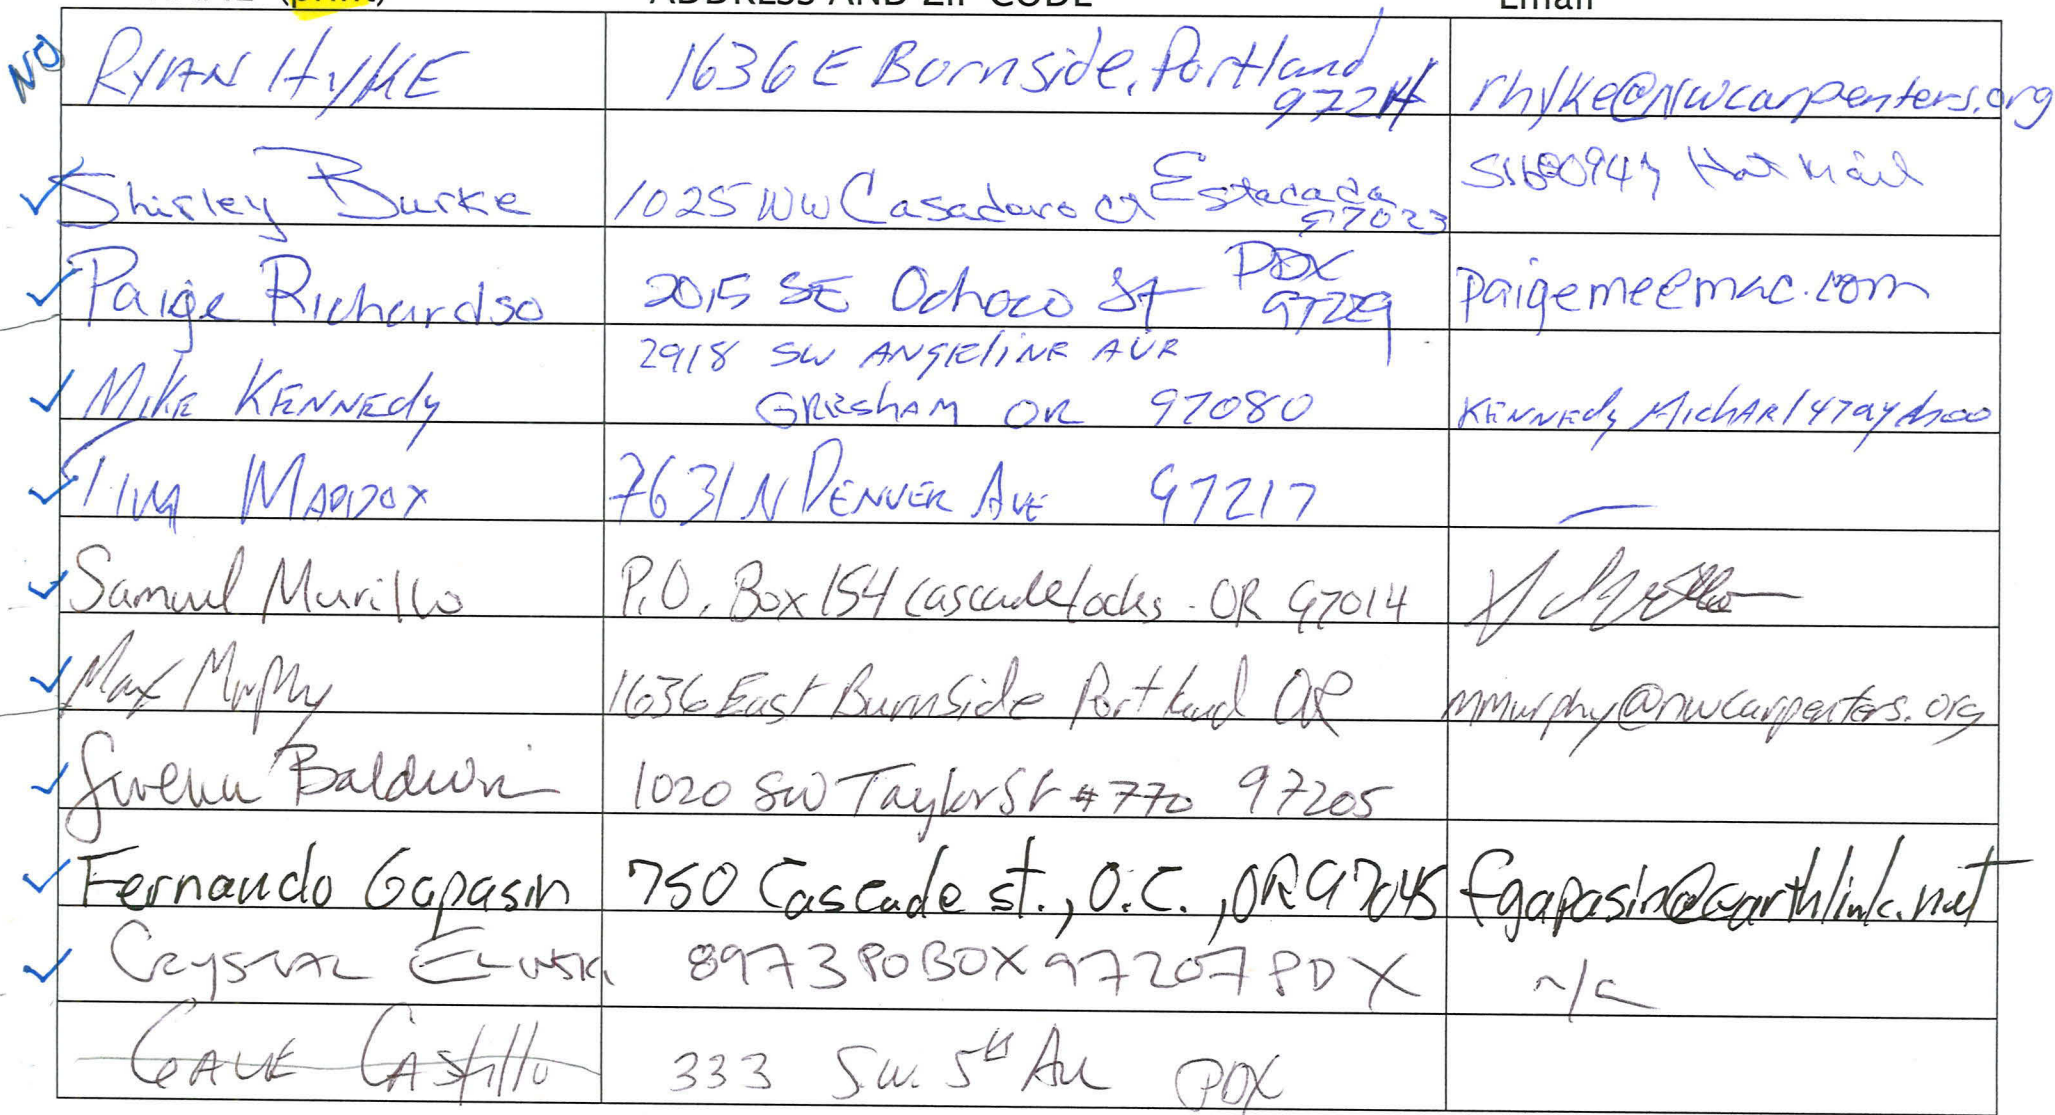 (print) ADDRESS AND ZIP CODE Email
NO RYAN HYKE 1636 E Burnside, Portland rhyke@nwcarpenters.org
972
✓ Shirley Burke 1025 NW Estacada Hot Mail
97023
✓ Paige Richardso 2015 SE Ochoco St PDX paigeme@mac.com
2918 SW ANGELINE AVE
✓ MIKE KENNEDY GRESHAM OR 97080
✓ TIM MADDOX 7631 N DENVER AVE 97217 —
✓ Samuel Murillo P.O. Box 154 cascade locks - OR 97014
✓ Max Murphy 1636 East Burnside Portland OR mmurphy@nwcarpenters.org
✓ Baldwin 1020 SW Taylor St #770 97205
✓ Fernando Gapasin 750 Cascade st., O.C., OR 97045 fgapasin@earthlink.net
✓ CRYSTAL 8973 PO BOX 97207 PDX n/a
CASTILLO 333 S.W. 5th Av PDX